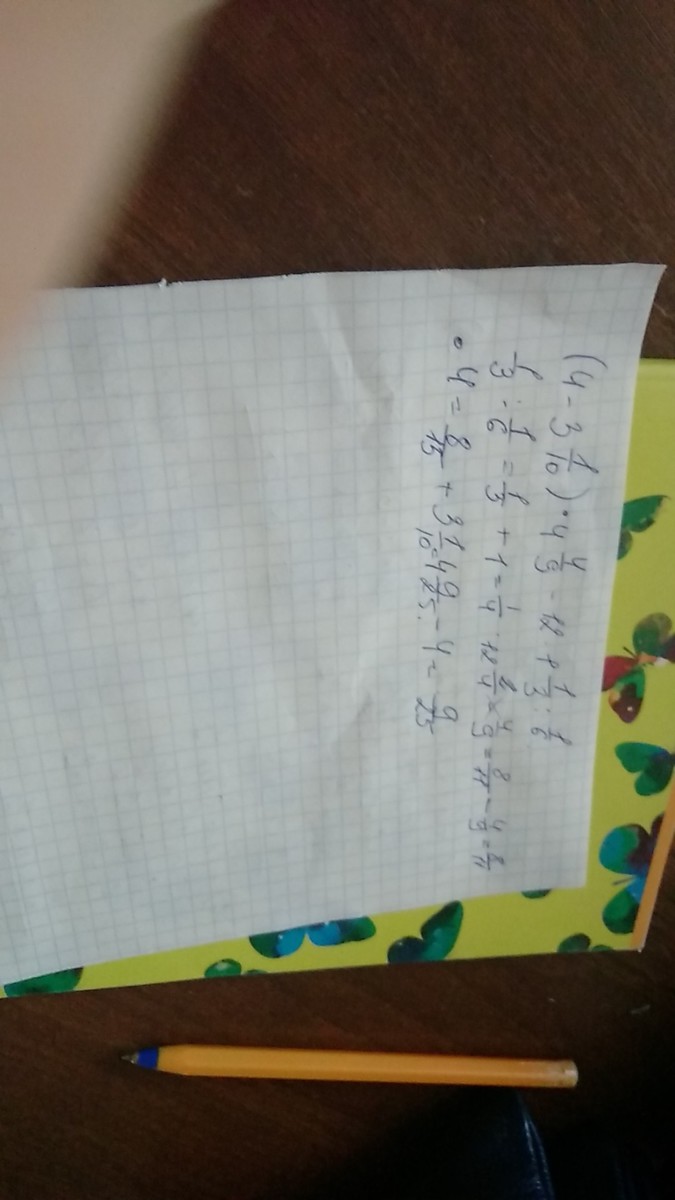 (4 - 3 1/10) · 4 4/9 - 12 + 1/3 : 1/6
1/3 : 1/6 = 1/3 + 1 = 1/4 · 12 8/4 = 4/9 = 8/11 - 4/9 = 8/11
· 4 = 8/15 + 3 1/10 = 4 9/25 - 4 = 9/25